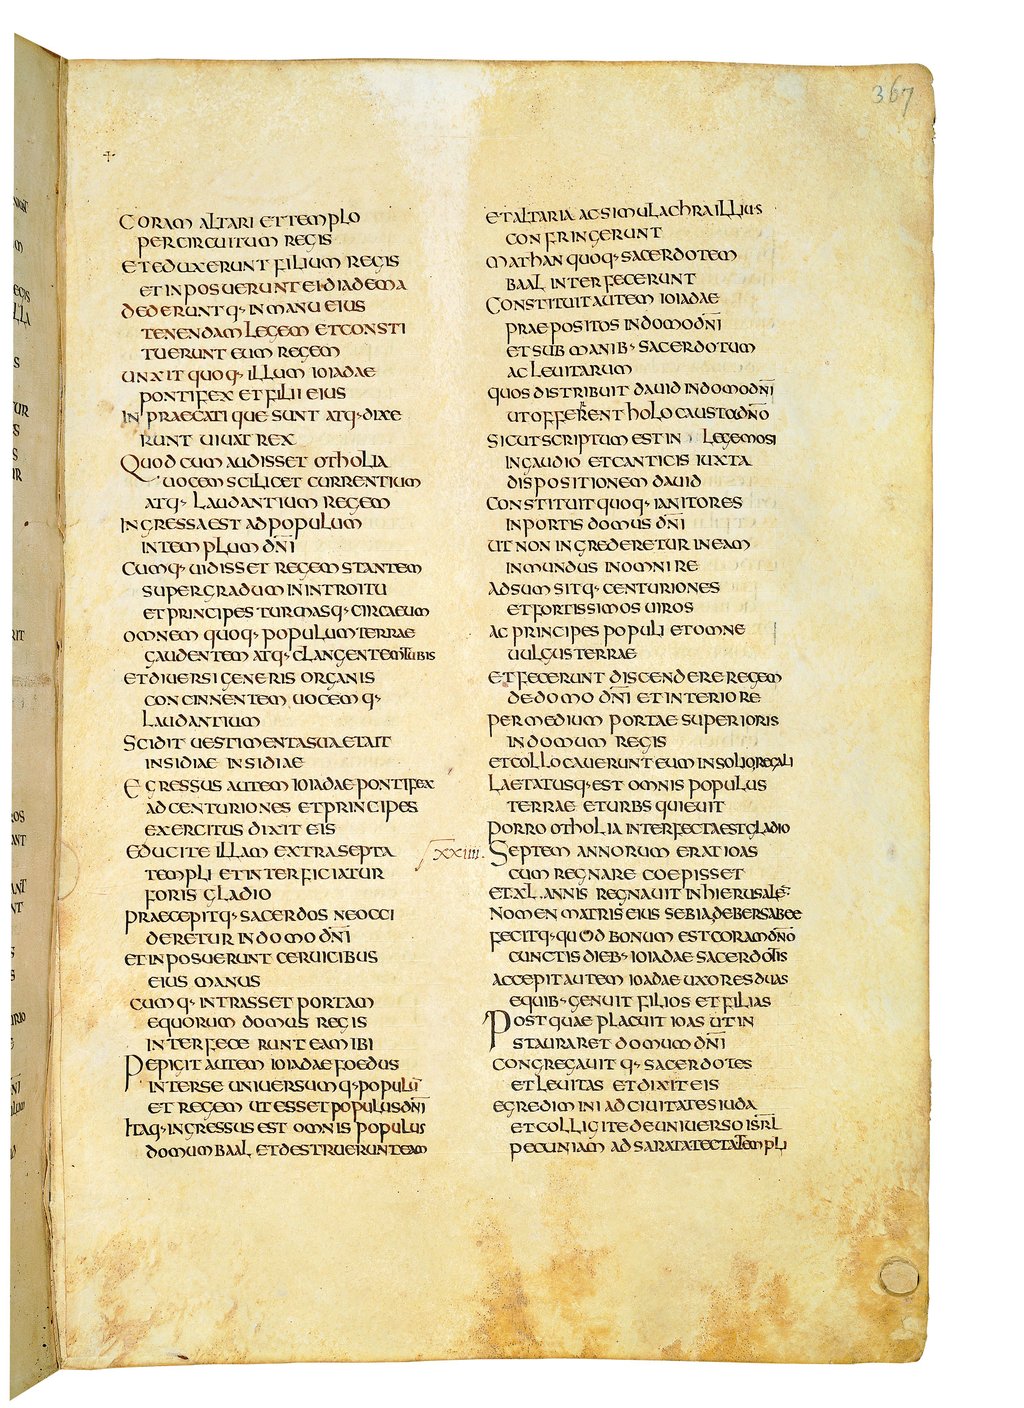 367
CORAM ALTARI ET TEMPLO
PER CIRCUITUM REGIS
ET EDUXERUNT FILIUM REGIS
ET INPOSUERUNT EI DIADEMA
DEDERUNTQ· IN MANU EIUS
TENENDAM LEGEM ET CONSTI
TUERUNT EUM REGEM
UNXIT QUOQ· ILLUM IOIADAE
PONTIFEX ET FILII EIUS
INPRAECATIQUE SUNT ATQ· DIXE
RUNT UIUAT REX
QUOD CUM AUDISSET OTHOLIA
UOCEM SCILICET CURRENTIUM
ATQ· LAUDANTIUM REGEM
INGRESSA EST AD POPULUM
IN TEMPLUM DN̅I
CUMQ· UIDISSET REGEM STANTEM
SUPER GRADUM IN INTROITU
ET PRINCIPES TURMASQ· CIRCA EUM
OMNEM QUOQ· POPULUM TERRAE
GAUDENTEM ATQ· CLANGENTEM TUBIS
ET DIUERSI GENERIS ORGANIS
CONCINNENTEM UOCEMQ·
LAUDANTIUM
SCIDIT UESTIMENTA SUA ET AIT
INSIDIAE INSIDIAE
EGRESSUS AUTEM IOIADAE PONTIFEX
AD CENTURIONES ET PRINCIPES
EXERCITUS DIXIT EIS
EDUCITE ILLAM EXTRA SEPTA
TEMPLI ET INTERFICIATUR
FORIS GLADIO
PRAECEPITQ· SACERDOS NE OCCI
DERETUR IN DOMO DN̅I
ET INPOSUERUNT CERUICIBUS
EIUS MANUS
CUMQ· INTRASSET PORTAM
EQUORUM DOMUS REGIS
INTERFECERUNT EAM IBI
PEPIGIT AUTEM IOIADAE FOEDUS
INTER SE UNIUERSUMQ· POPULU̅
ET REGEM UT ESSET POPULUS DN̅I
ITAQ· INGRESSUS EST OMNIS POPULUS
DOMUM BAAL ET DESTRUERUNT EAM
ET ALTARIA AC SIMULACHRA ILLIUS
CONFRINGERUNT
MATHAN QUOQ· SACERDOTEM
BAAL INTERFECERUNT
CONSTITUIT AUTEM IOIADAE
PRAEPOSITOS IN DOMO DN̅I
ET SUB MANIB· SACERDOTUM
AC LEUITARUM
QUOS DISTRIBUIT DAUID IN DOMO DN̅I
UT OFFERRENT HOLOCAUSTA DN̅O
SICUT SCRIPTUM EST IN LEGE MOSI
IN GAUDIO ET CANTICIS IUXTA
DISPOSITIONEM DAUID
CONSTITUIT QUOQ· IANITORES
IN PORTIS DOMUS DN̅I
UT NON INGREDERETUR IN EAM
INMUNDUS IN OMNI RE
ADSUMSITQ· CENTURIONES
ET FORTISSIMOS UIROS
AC PRINCIPES POPULI ET OMNE
UULGUS TERRAE
ET FECERUNT DISCENDERE REGEM
DE DOMO DN̅I ET INTERIORE
PER MEDIUM PORTAE SUPERIORIS
IN DOMUM REGIS
ET COLLOCAUERUNT EUM IN SOLIO REGALI
LAETATUSQ· EST OMNIS POPULUS
TERRAE ET URBS QUIEUIT
PORRO OTHOLIA INTERFECTA EST GLADIO
XXIIII. SEPTEM ANNORUM ERAT IOAS
CUM REGNARE COEPISSET
ET XL. ANNIS REGNAUIT IN HIERUSALE̅·
NOMEN MATRIS EIUS SEBIA DE BERSABEE
FECITQ· QUOD BONUM EST CORAM DN̅O
CUNCTIS DIEB· IOIADAE SACERDOTIS
ACCEPIT AUTEM IOIADAE UXORES DUAS
E QUIB· GENUIT FILIOS ET FILIAS
POST QUAE PLACUIT IOAS UT IN
STAURARET DOMUM DN̅I
CONGREGAUITQ· SACERDOTES
ET LEUITAS ET DIXIT EIS
EGREDIMINI AD CIUITATES IUDA
ET COLLIGITE DE UNIUERSO ISRL̅
PECUNIAM AD SARATA TECTA TEMPLI